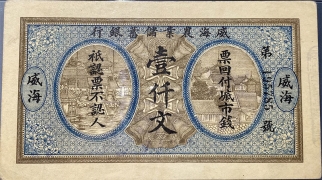 威海農業儲蓄銀行
第
號
票回付城市錢
壹仟文
祇認票不認人
威海
威海